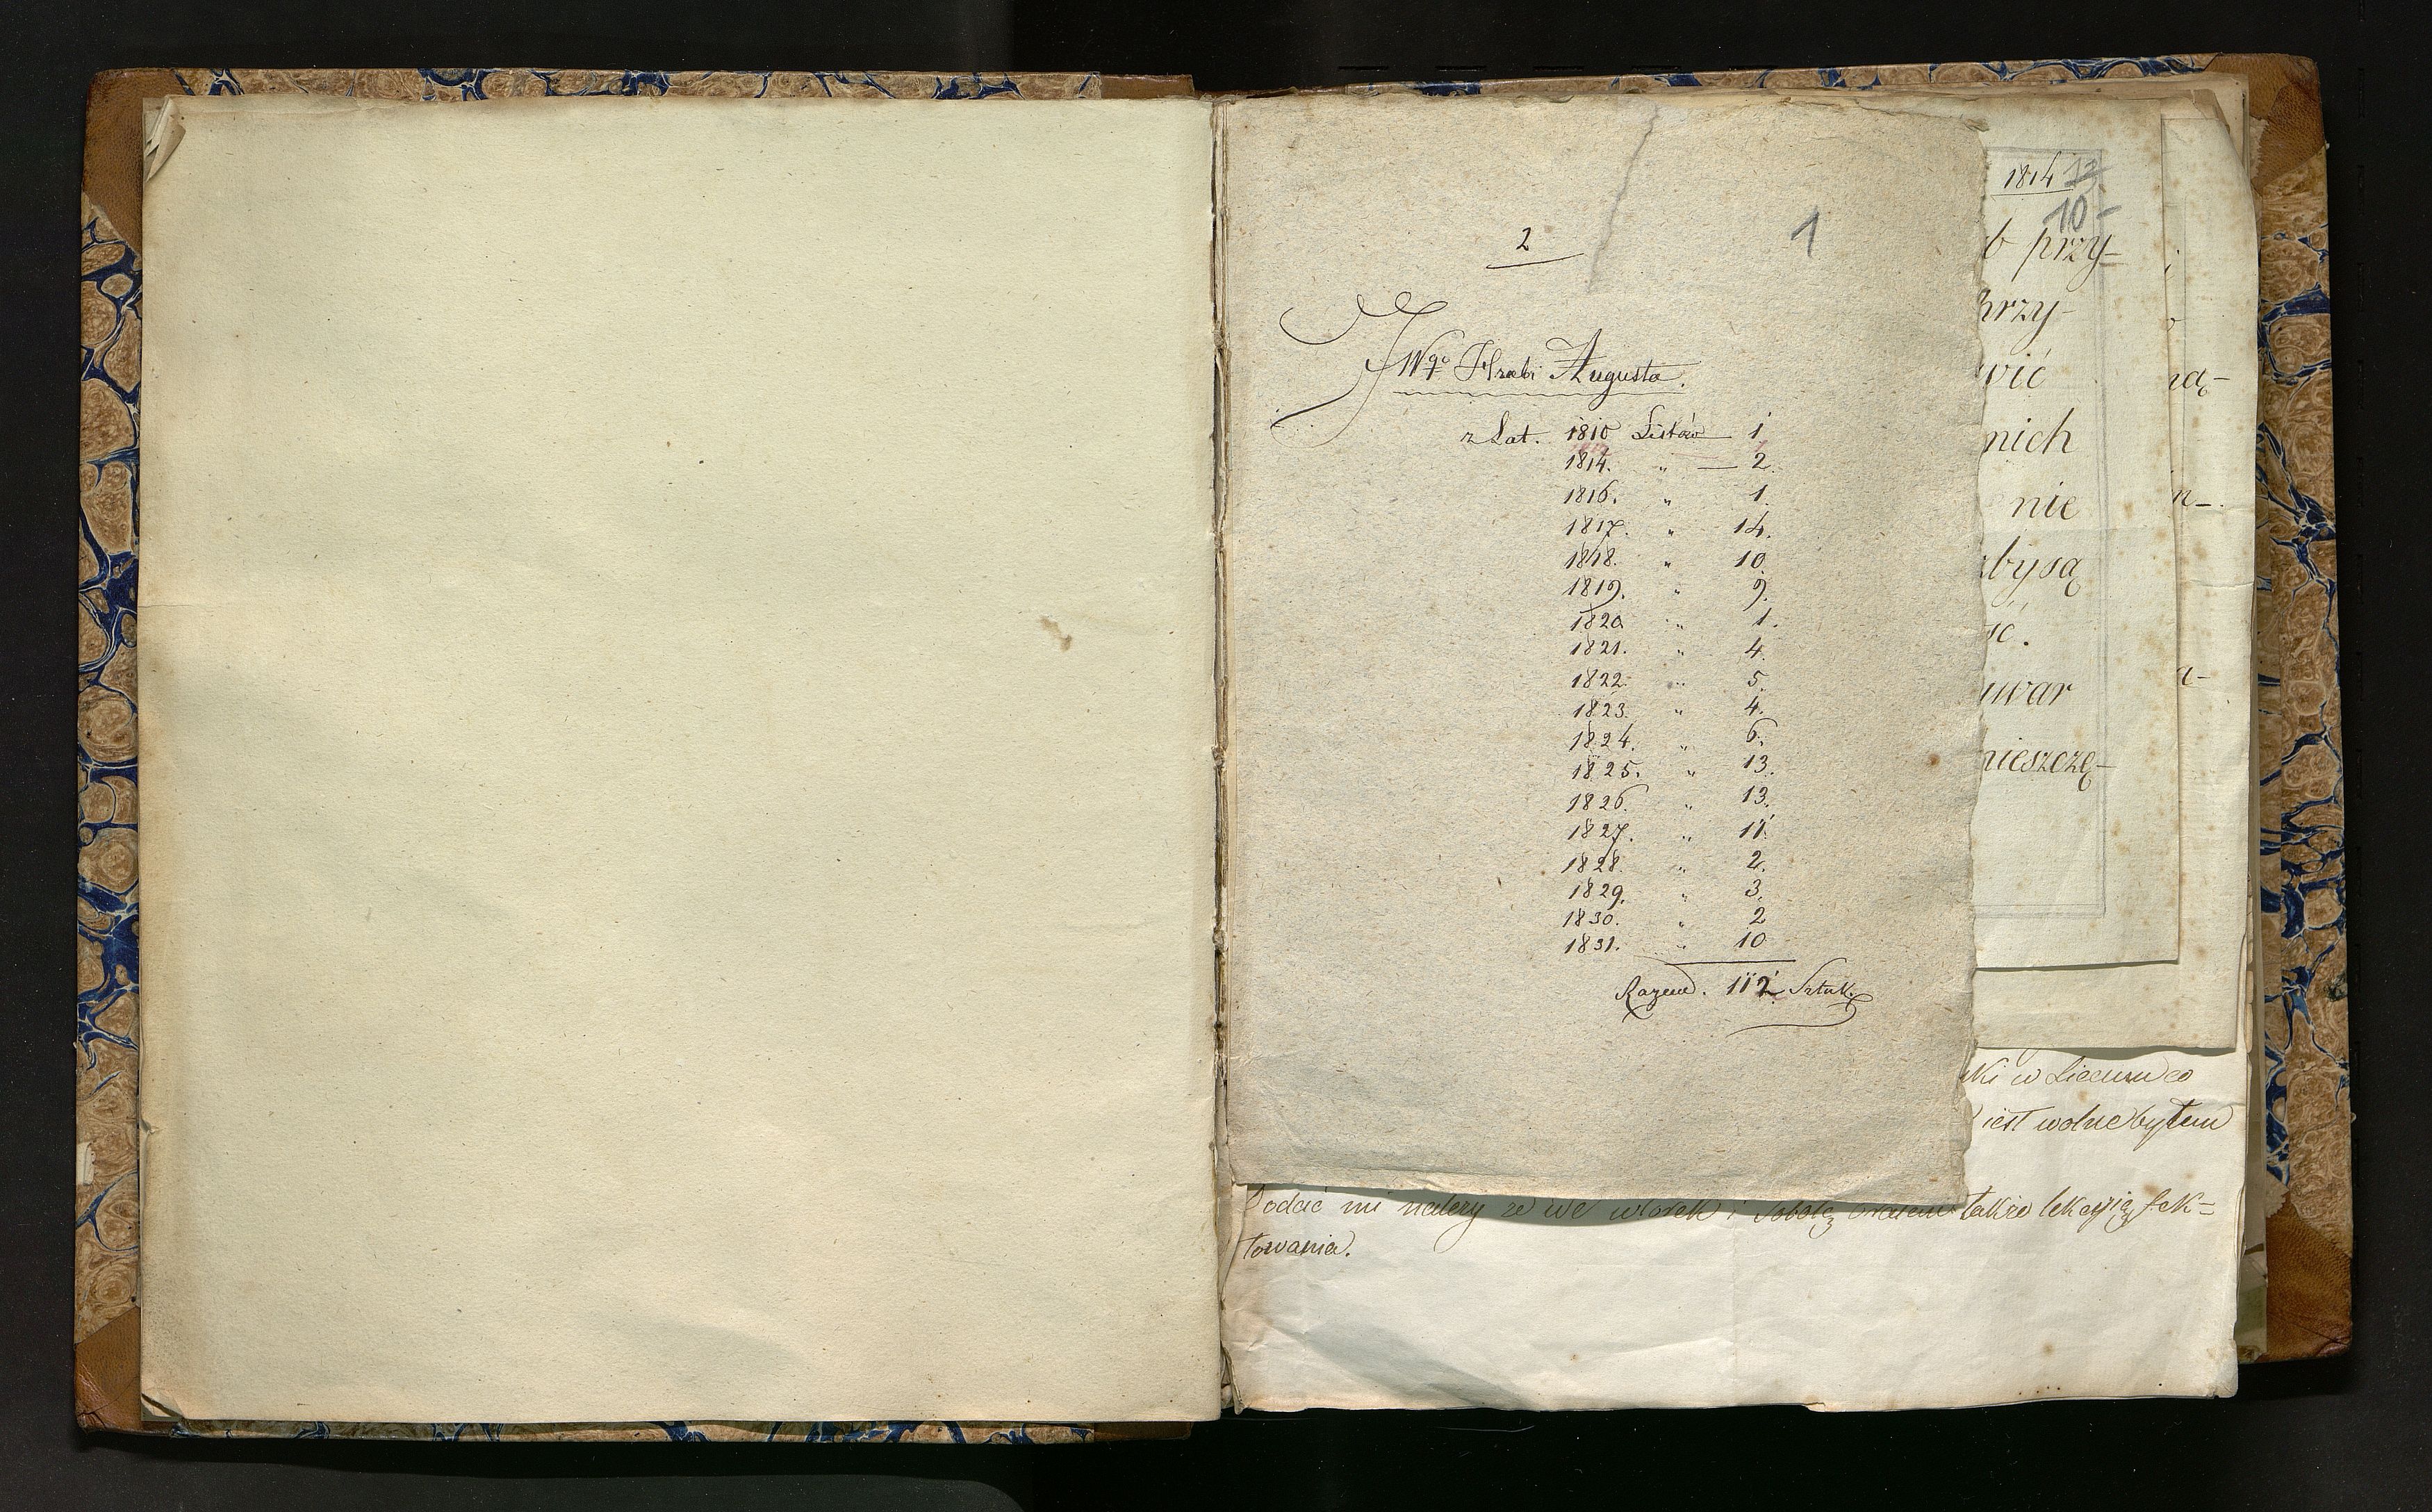 2
1
JWgo Hrabi Augusta.
z Lat. 1810 Listów 1
1814. " — 2.
1816. " 1.
1817. " 14.
1818. " 10.
1819. " 9.
1820 " 1.
1821. " 4.
1822. " 5.
1823. " 4.
1824. " 6.
1825. " 13.
1826. " 13.
1827. " 11.
1828. " 2.
1829. " 3.
1830. " 2
1831. " 10
Razem. 112 Sztuk.
1814 12
10-
b przy-
krzy-
wić
nich
nie
zbysą
ść.
uwar
nieszczę-
ną-
n-.
a-
ki w Liceum co
iest wolne bytem
Dodać mi należy ze we wtorek i sobotę bratem także lekcyią fek=
towania.